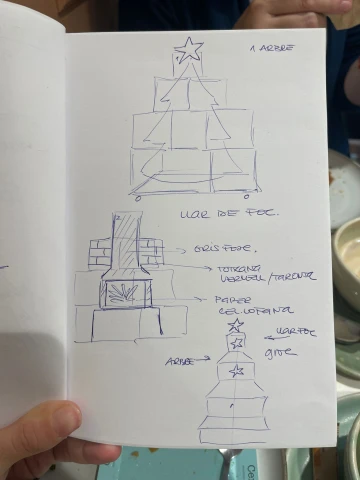 1 ARBRE
LLAR DE FOC.
GRIS FOSC.
TOTXANA
VERMELL/TARONJA
PAPER
CEL·LOFANA
LLAR FOC
ARBRE